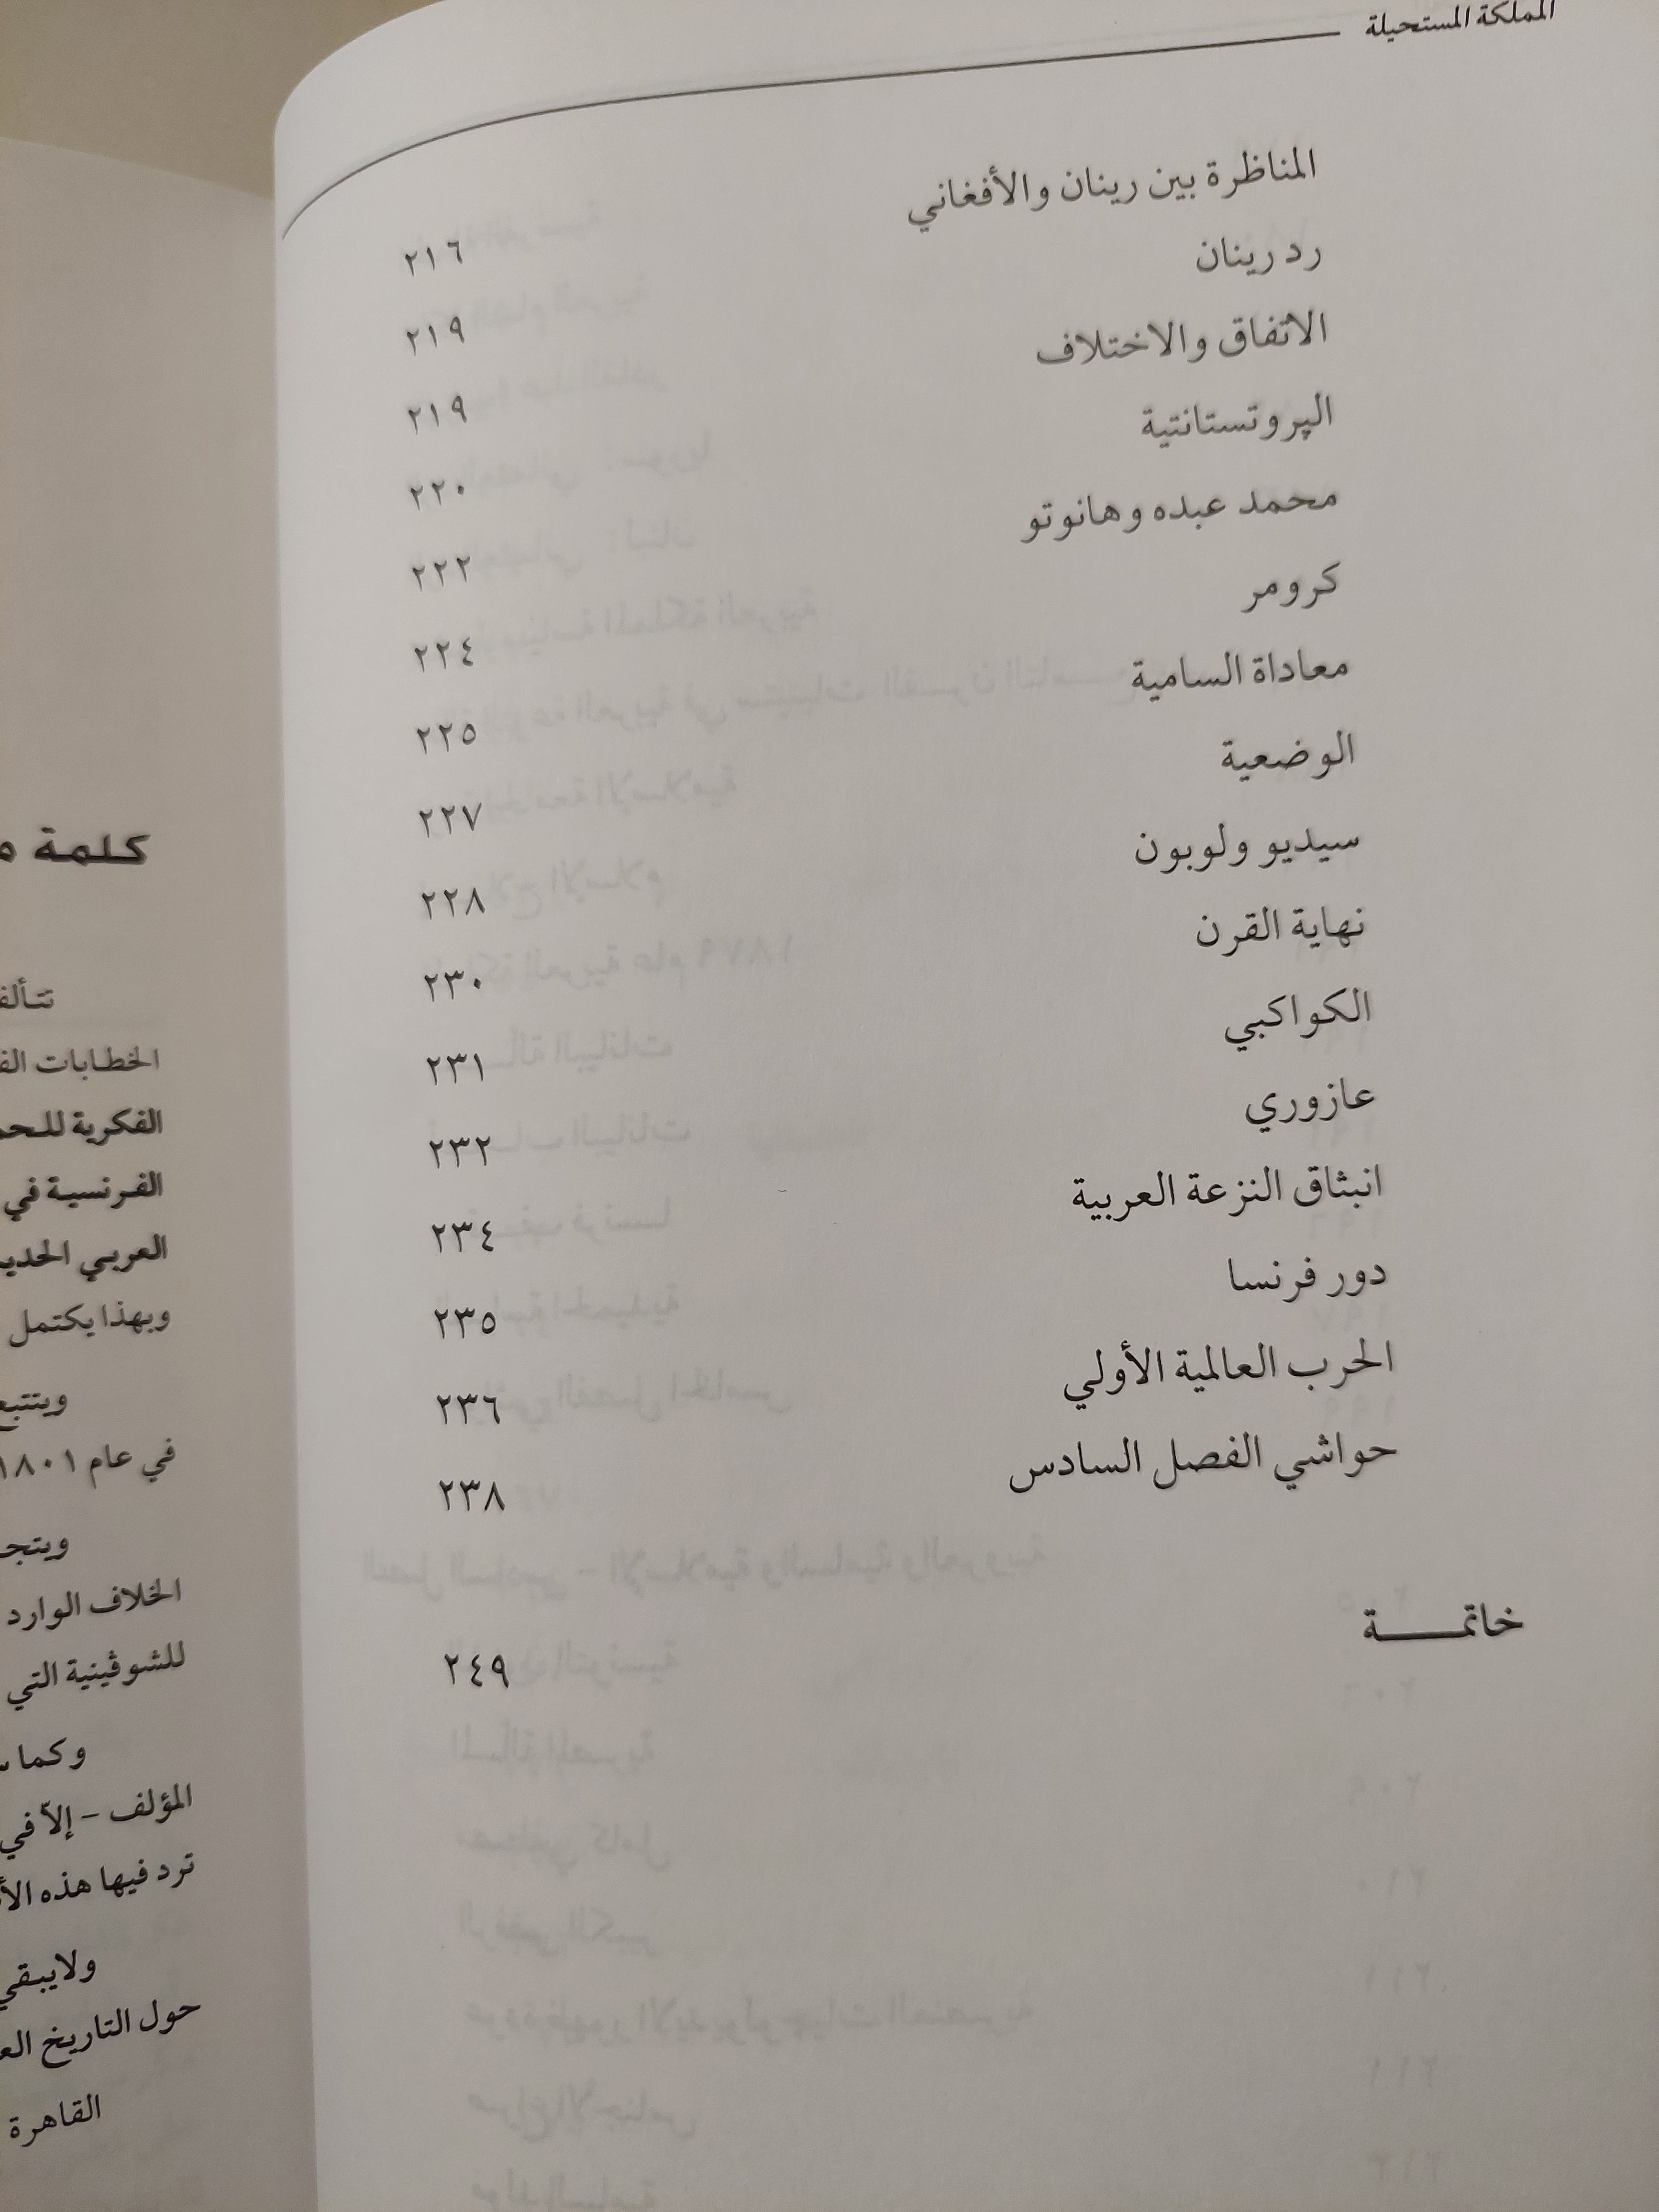 المملكة المستحيلة
المناظرة بين رينان والأفغاني ٢١٦
رد رينان ٢١٩
الاتفاق والاختلاف ٢١٩
الپروتستانتية ٢٢٠
محمد عبده وهانوتو ٢٢٢
كرومر ٢٢٤
معاداة السامية ٢٢٥
الوضعية ٢٢٧
سيديو ولوبون ٢٢٨
نهاية القرن ٢٣٠
الكواكبي ٢٣١
عازوري ٢٣٢
انبثاق النزعة العربية ٢٣٤
دور فرنسا ٢٣٥
الحرب العالمية الأولي ٢٣٦
حواشي الفصل السادس ٢٣٨
خاتمـــــة ٢٤٩
كلمة
الخطابات
الفكرية
الفرنسية في
العربي
وبهذا يكتمل
في عام ١٨٠١
الخلاف الوارد
للشوڤينية التي
وكما
المؤلف - إلاّ في
ترد فيها هذه
ولايبقي
حول التاريخ
القاهرة